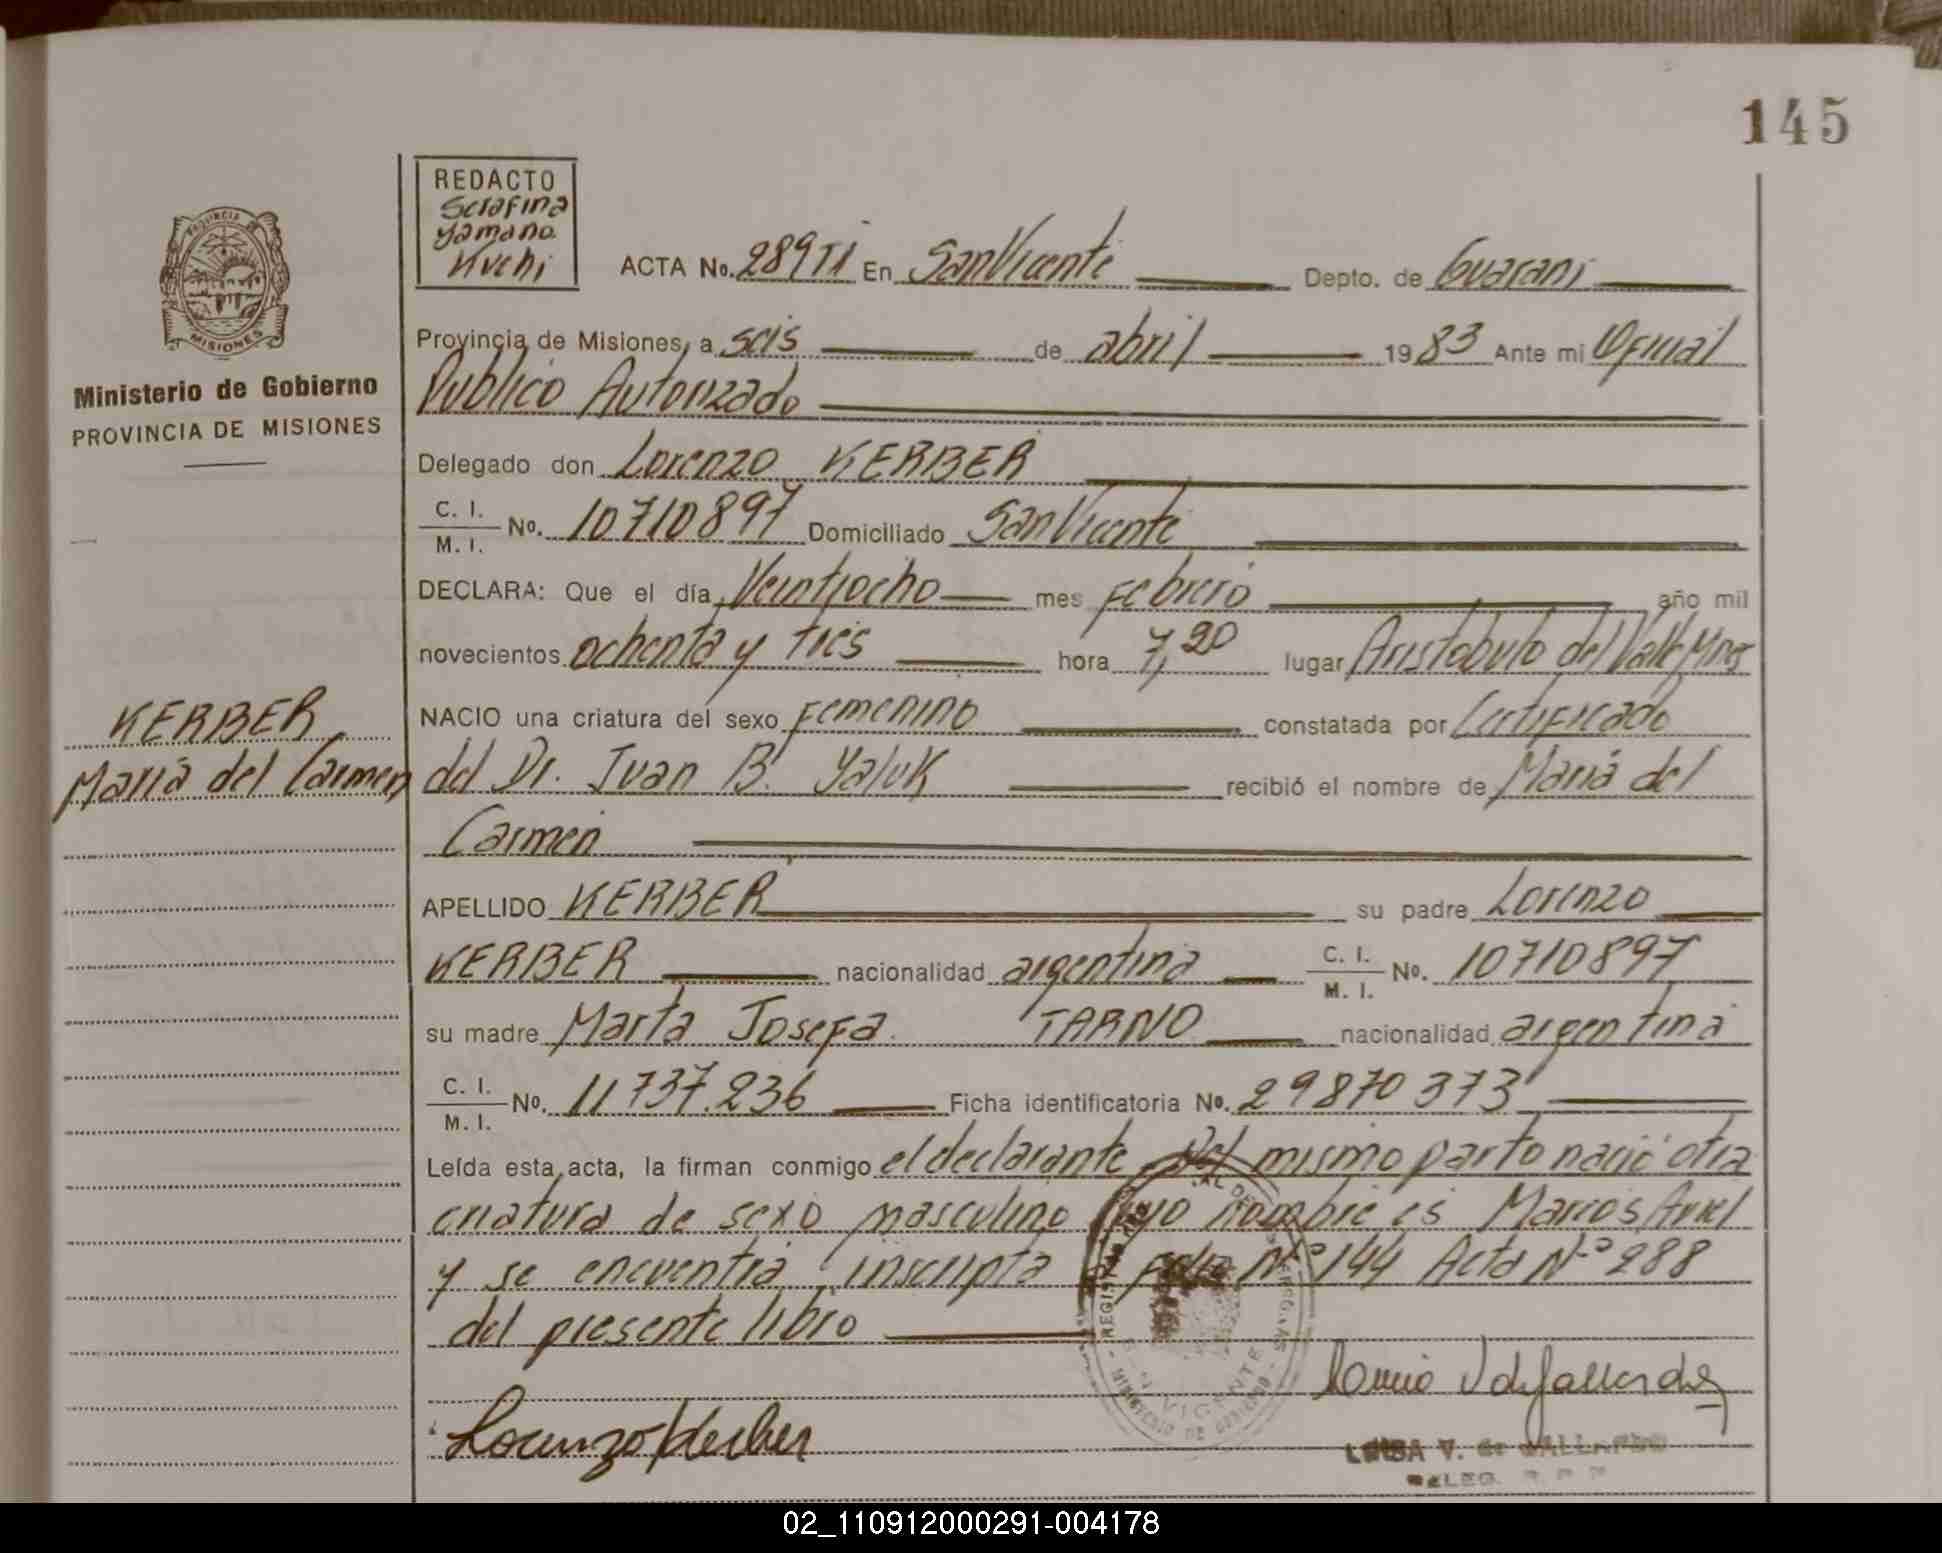 145
REDACTO
Serafina
Yamana
Kuchi
PROVINCIA
MISIONES
Ministerio de Gobierno
PROVINCIA DE MISIONES
ACTA No. 289TI En San Vicente Depto. de Guarani
Provincia de Misiones, a seis de abril 1983 Ante mi Oficial
Publico Autorizado
Delegado don Lorenzo KERBER
C. I.
M. I. No. 10710897 Domiciliado San Vicente
DECLARA: Que el día Veintiocho mes Febrero año mil
novecientos ochenta y tres hora 7,20 lugar Aristobulo del Valle Mnes
KERBER
María del Carmen
NACIO una criatura del sexo Femenino constatada por Certificado
del Dr. Juan B. Yaluk recibió el nombre de María del
Carmen
APELLIDO KERBER su padre Lorenzo
KERBER nacionalidad argentina C. I. M. I. No. 10710897
su madre Marta Josefa TARNO nacionalidad argentina
C. I.
M. I. No. 11737.236 Ficha identificatoria No. 29870373
Leída esta acta, la firman conmigo el declarante Del mismo parto nació otra
criatura de sexo masculino cuyo nombre es Marcos Ariel
y se encuentra inscripta Nº 144 Acta Nº 288
del presente libro
Lorenzo Kerber
VIGENTE
02_110912000291-004178